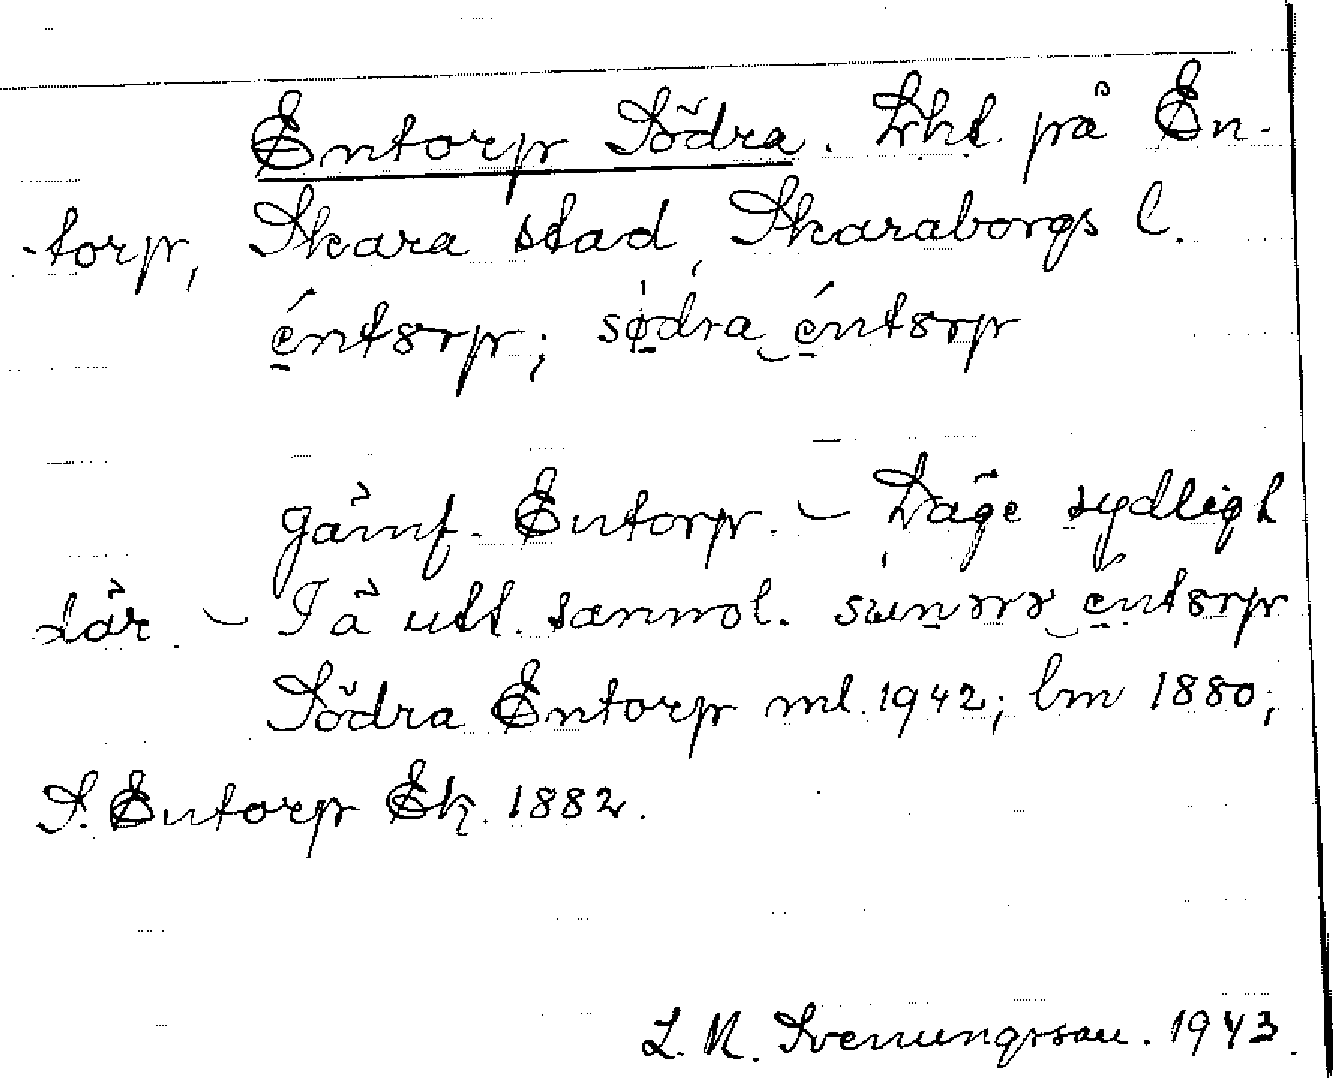 Entorp Södra. Lht. på En-
torp, Skara stad, Skaraborgs l.
éntɞrp; sø̀dra éntɞrp
Jämf. Entorp. – Läge sydligt
där. – Få utt. sannol. 
Södra Entorp ml. 1942; lm 1880;
S. Entorp Ek. 1882.
L. N. Svenungsson. 1943.